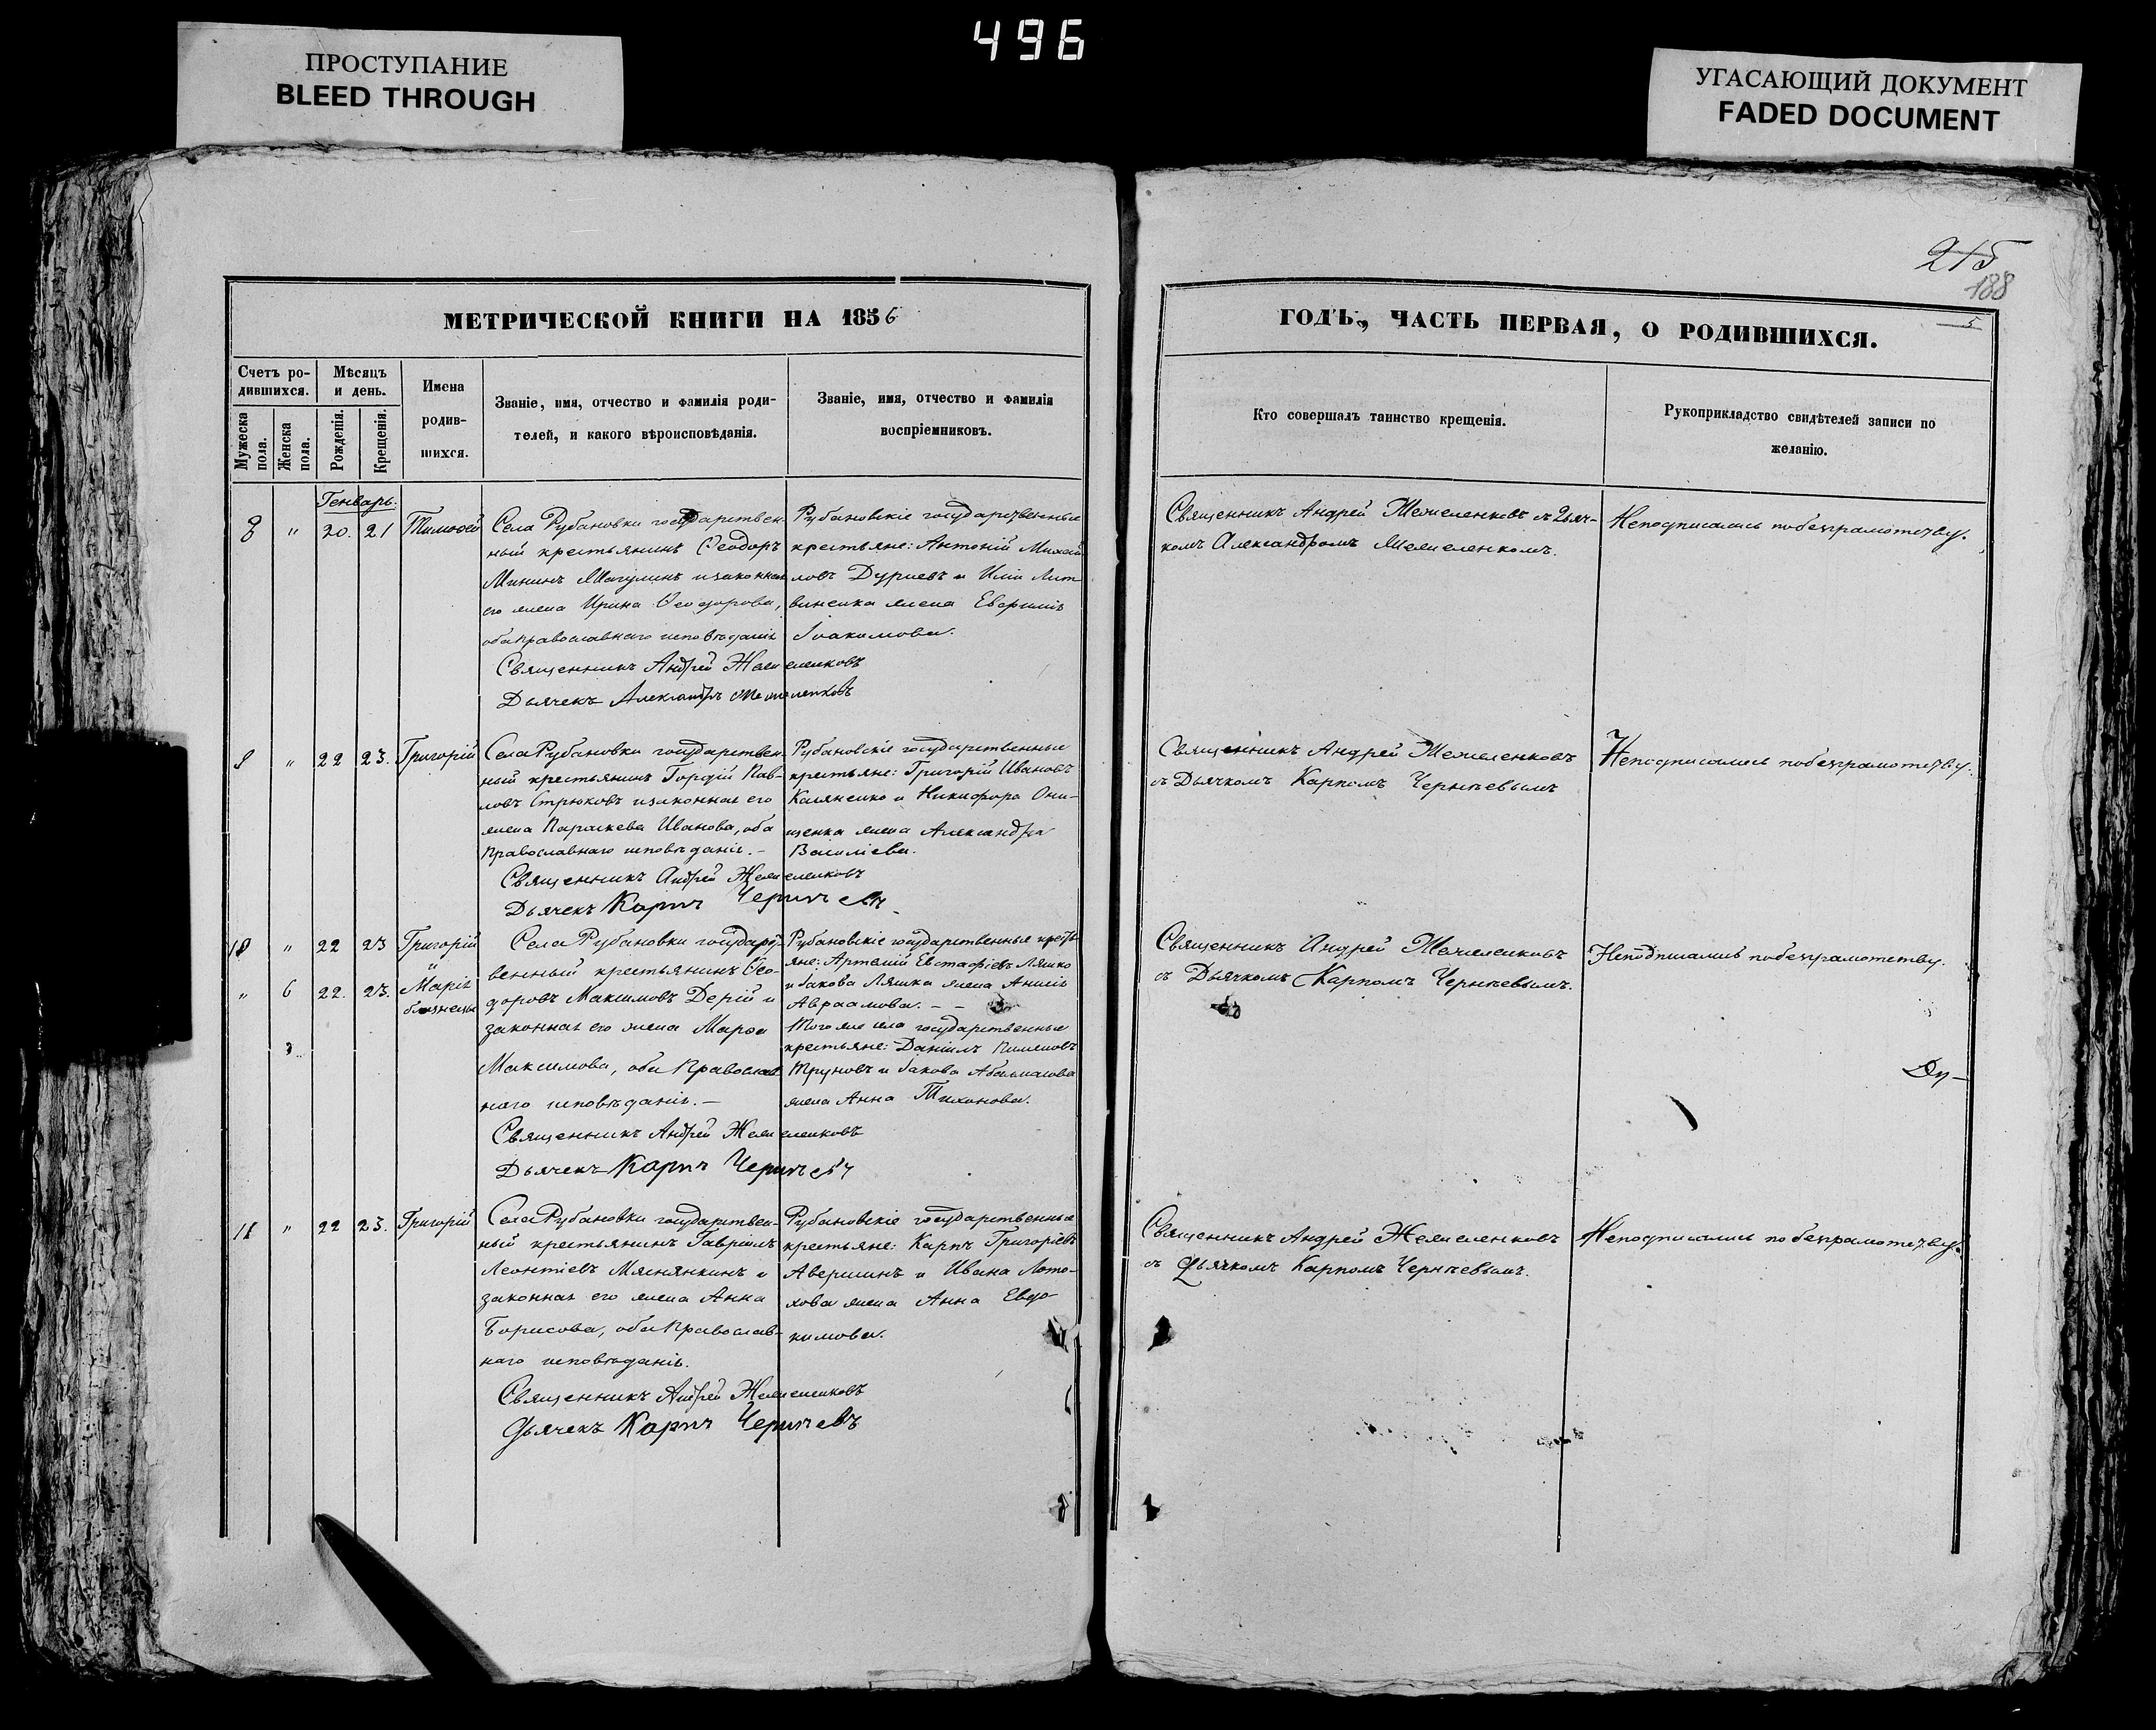 496
ПРОСТУПАНИЕ
BLEED THROUGH
УГАСАЮЩИЙ ДОКУМЕНТ
FADED DOCUMENT
215
188
5
МЕТРИЧЕСКОЙ КНИГИ НА 1856
ГОДЪ, ЧАСТЬ ПЕРВАЯ, О РОДИВШИХСЯ.
Счетъ ро-
дившихся.
Мѣсяцъ
и день.
Мужеска
пола.
Женска
пола.
Рожденія.
Крещенія.
Имена
родив-
шихся.
Званіе, имя, отчество и фамилія роди-
телей, и какого вѣроисповѣданія.
Званіе, имя, отчество и фамилія
воспріемниковъ.
Кто совершалъ таинство крещенія.
Рукоприкладство свидѣтелей записи по
желанію.
Генварь:
8 " 20. 21 Тимоѳей
Села Рубановки государствен-
ный крестьянинъ Ѳеодоръ
Мининъ и законная
его жена Ирина Ѳеодорова,
оба православнаго исповѣданія
Священникъ Андрей Жежеленковъ
Дьячекъ Александръ Жежеленковъ
Рубановскіе государственные
крестьяне: Антоній Михай
ловъ и Иліи Лит
виненка жена Евфимія
Іоакимова.
Священникъ Андрей Жежеленковъ съ Дьяч-
комъ Александромъ Жежеленкомъ.
Неподписались по безграмотству.
9 " 22 23. Григорій
Села Рубановки государствен-
ный крестьянинъ Гордій Пав-
ловъ Стрюковъ и законная его
жена Параскева Иванова, оба
Православнаго исповѣданія. –
Священникъ Андрей Жежеленковъ
Дьячекъ Карпъ Чернѣевъ
Рубановскіе государственные
крестьяне: Григорій Ивановъ
и Никифора Они-
щенка жена Александра
Василіева.
Священникъ Андрей Жежеленковъ
съ Дьячкомъ Карпомъ Чернѣевымъ
Неподписались по безграмотству.
10 " 22 23 Григорій
и
" 6 22. 23. Марія
близнецы
Села Рубановки государст-
венный крестьянинъ Ѳео-
доровъ Максимовъ Дерій и
законная его жена Марѳа
Максимова, оба Православ
наго исповѣданія. –
Священникъ Андрей Жежеленковъ
Дьячекъ Карпъ Чернѣевъ
Рубановскіе государственные кресть
яне: Артемій Евстафіевъ Ляшко
и Іакова Ляшка жена Аннія
Авраамова. – –
Того же села государственные
крестьяне: Даніилъ Пименовъ
Труновъ и Іакова
жена Анна Тихонова.
Священникъ Андрей Жежеленковъ
съ Дьячкомъ Карпомъ Чернѣевымъ.
Неподписались по безграмотству.
Ду–
11 " 22 23. Григорій
Села Рубановки государствен-
ный крестьянинъ Гавріилъ
Леонтіевъ Мяснянкинъ и
законная его жена Анна
Борисова, оба Православ-
наго исповѣданія.
Священникъ Андрей Жежеленковъ
Дьячекъ Карпъ Чернѣевъ
Рубановскіе государственные
крестьяне: Карпъ Григоріевъ
Авершинъ и Ивана Лото-
хова жена Анна Евдо
кимова.
Священникъ Андрей Жежеленковъ
съ Дьячкомъ Карпомъ Чернѣевымъ.
Неподписались по безграмотству.